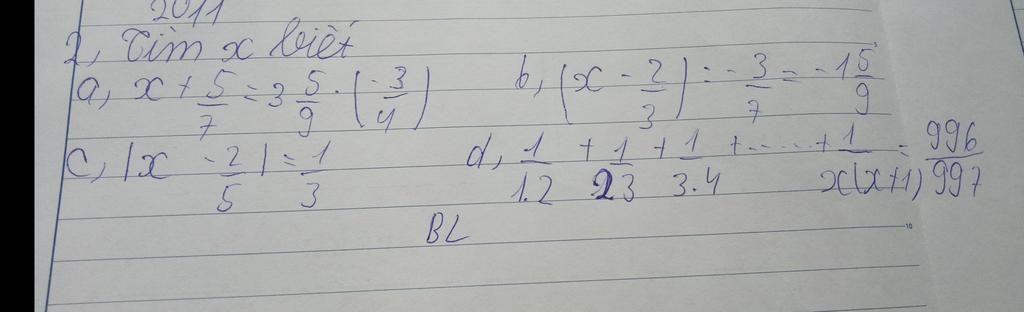 2011
2, Tìm x biết
a, x + 5/7 = 3 5/9 . (-3/4) b, (x - 2/3) : -3/7 = -1 5/9
c, |x - 2/5| = 1/3 d, 1/1.2 + 1/23 + 1/3.4 + ..... + 1/x(x+1) = 996/997
BL
10